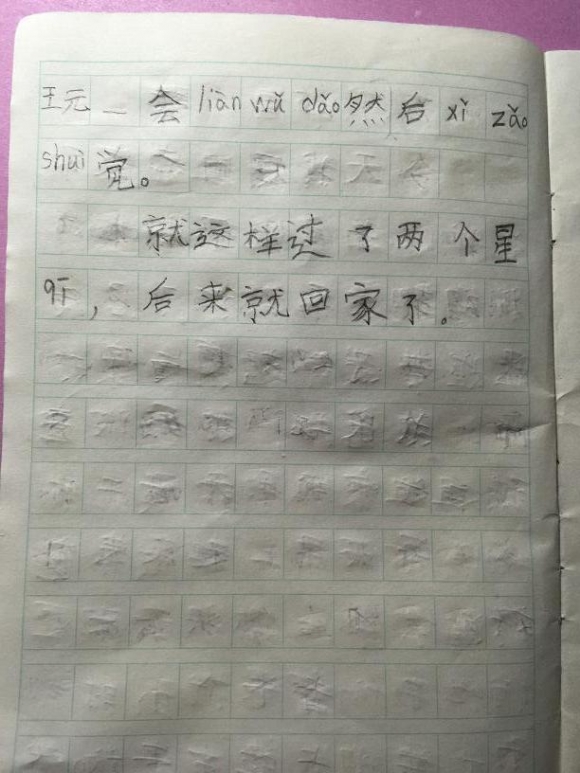 王元一会liàn wǔ dǎo然后xǐ zǎo
shuì觉。
就这样过了两个星
qī，后来就回家了。